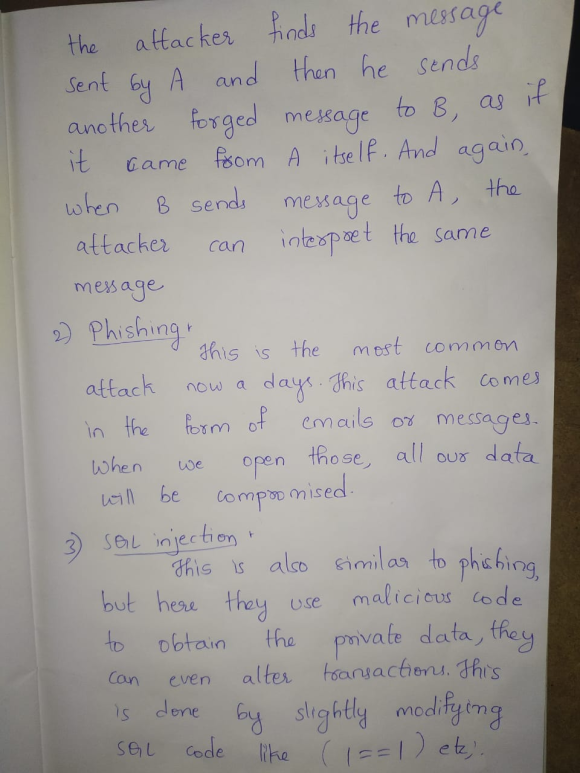 the attacker finds the message
sent by A and then he sends
another forged message to B, as if
it came from A itself. And again,
when B sends message to A, the
attacker can interpret the same
message
2) Phishing:
This is the most common
attack now a days. This attack comes
in the form of emails or messages.
When we open those, all our data
will be compromised.
3) SQL injection:
This is also similar to phishing,
but here they use malicious code
to obtain the private data, they
can even alter transactions. This
is done by slightly modifying
SQL code like (1==1) etc,.